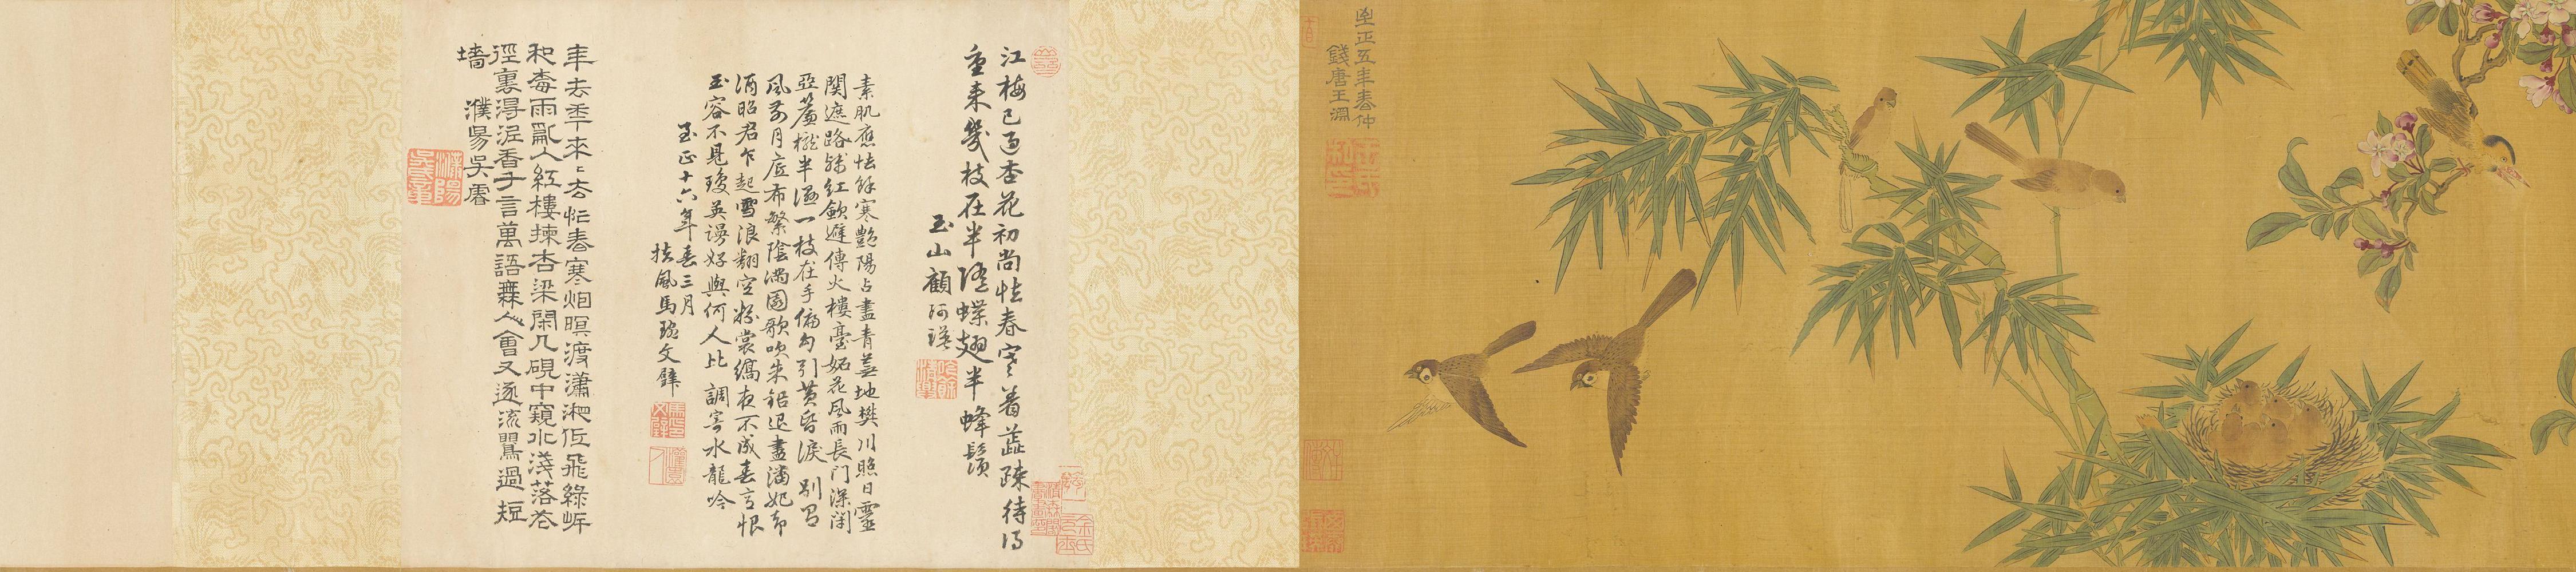 至正五年春仲
錢唐王淵
江梅已過杏花初尚怯春寒着蘂疎待得
重來幾枝在半隨蝶翅半蜂鬚
玉山顧阿瑛
素肌應怯餘寒艷陽占盡青蕪地樊川照日靈
関遮路殘紅斂避傳火樓臺妬花風雨長门深閉
亞簾櫳半濕一枝在手偏勾引黃昏淚 別有
風前月底布繁陰滿園歌吹朱鉛退盡潘妃却
酒昭君乍起雪浪翻空粉裳縞夜不成春意恨
玉容不見瓊英謾好與何人比 調寄水龍吟
至正十六年春三月
扶風馬琬文璧
年去年來來去忙春寒烟暝渡瀟湘低飛綠岸
和梅雨亂入紅樓揀杏梁閑几硯中窺水淺落花
徑裏得泥香千言萬語無人會又逐流鶯過短
墻 濮昜吳睿